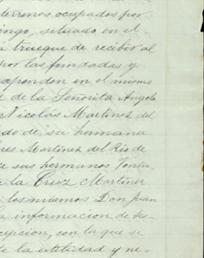 terrenos ocupados por
ingo, situado en el
a trueque de recibir al
por las fundadas y
esponden en el mismo
e de la Señorita Angela
Nicolas Martinez del
do de su hermana
res Martinez del Rio de
e sus hermanos
a la Cruz Martinez
los mismos Don Juan
a informacion de
cepcion, con la que se
de la utilidad y ne-